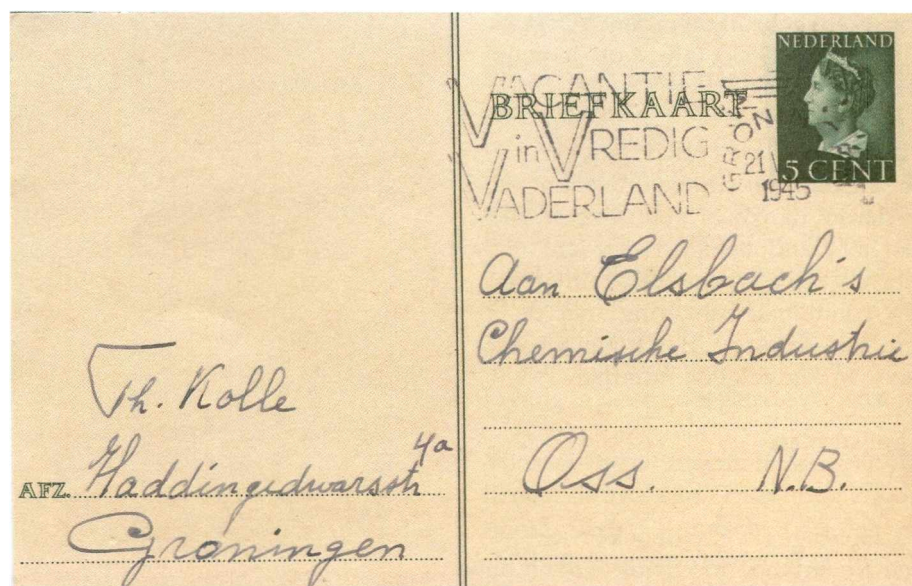 NEDERLAND
5 CENT
BRIEFKAART
VACANTIE
in VREDIG
VADERLAND
21
1945
Aan Elsbach's
Chemische Industrie
Oss. N.B.
Th. Kolle
4a
AFZ. Haddingedwarsstr
Groningen